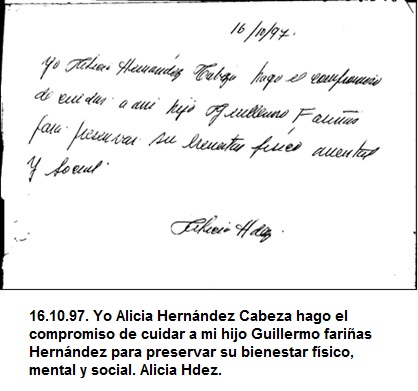 16/10/97.
Yo Alicia Hernández Cabeza hago el compromiso
de cuidar a mi hijo Guillermo Fariñas
para preservar su bienestar físico mental
Y Social.
Alicia Hdez.
16.10.97. Yo Alicia Hernández Cabeza hago el
compromiso de cuidar a mi hijo Guillermo fariñas
Hernández para preservar su bienestar físico,
mental y social. Alicia Hdez.